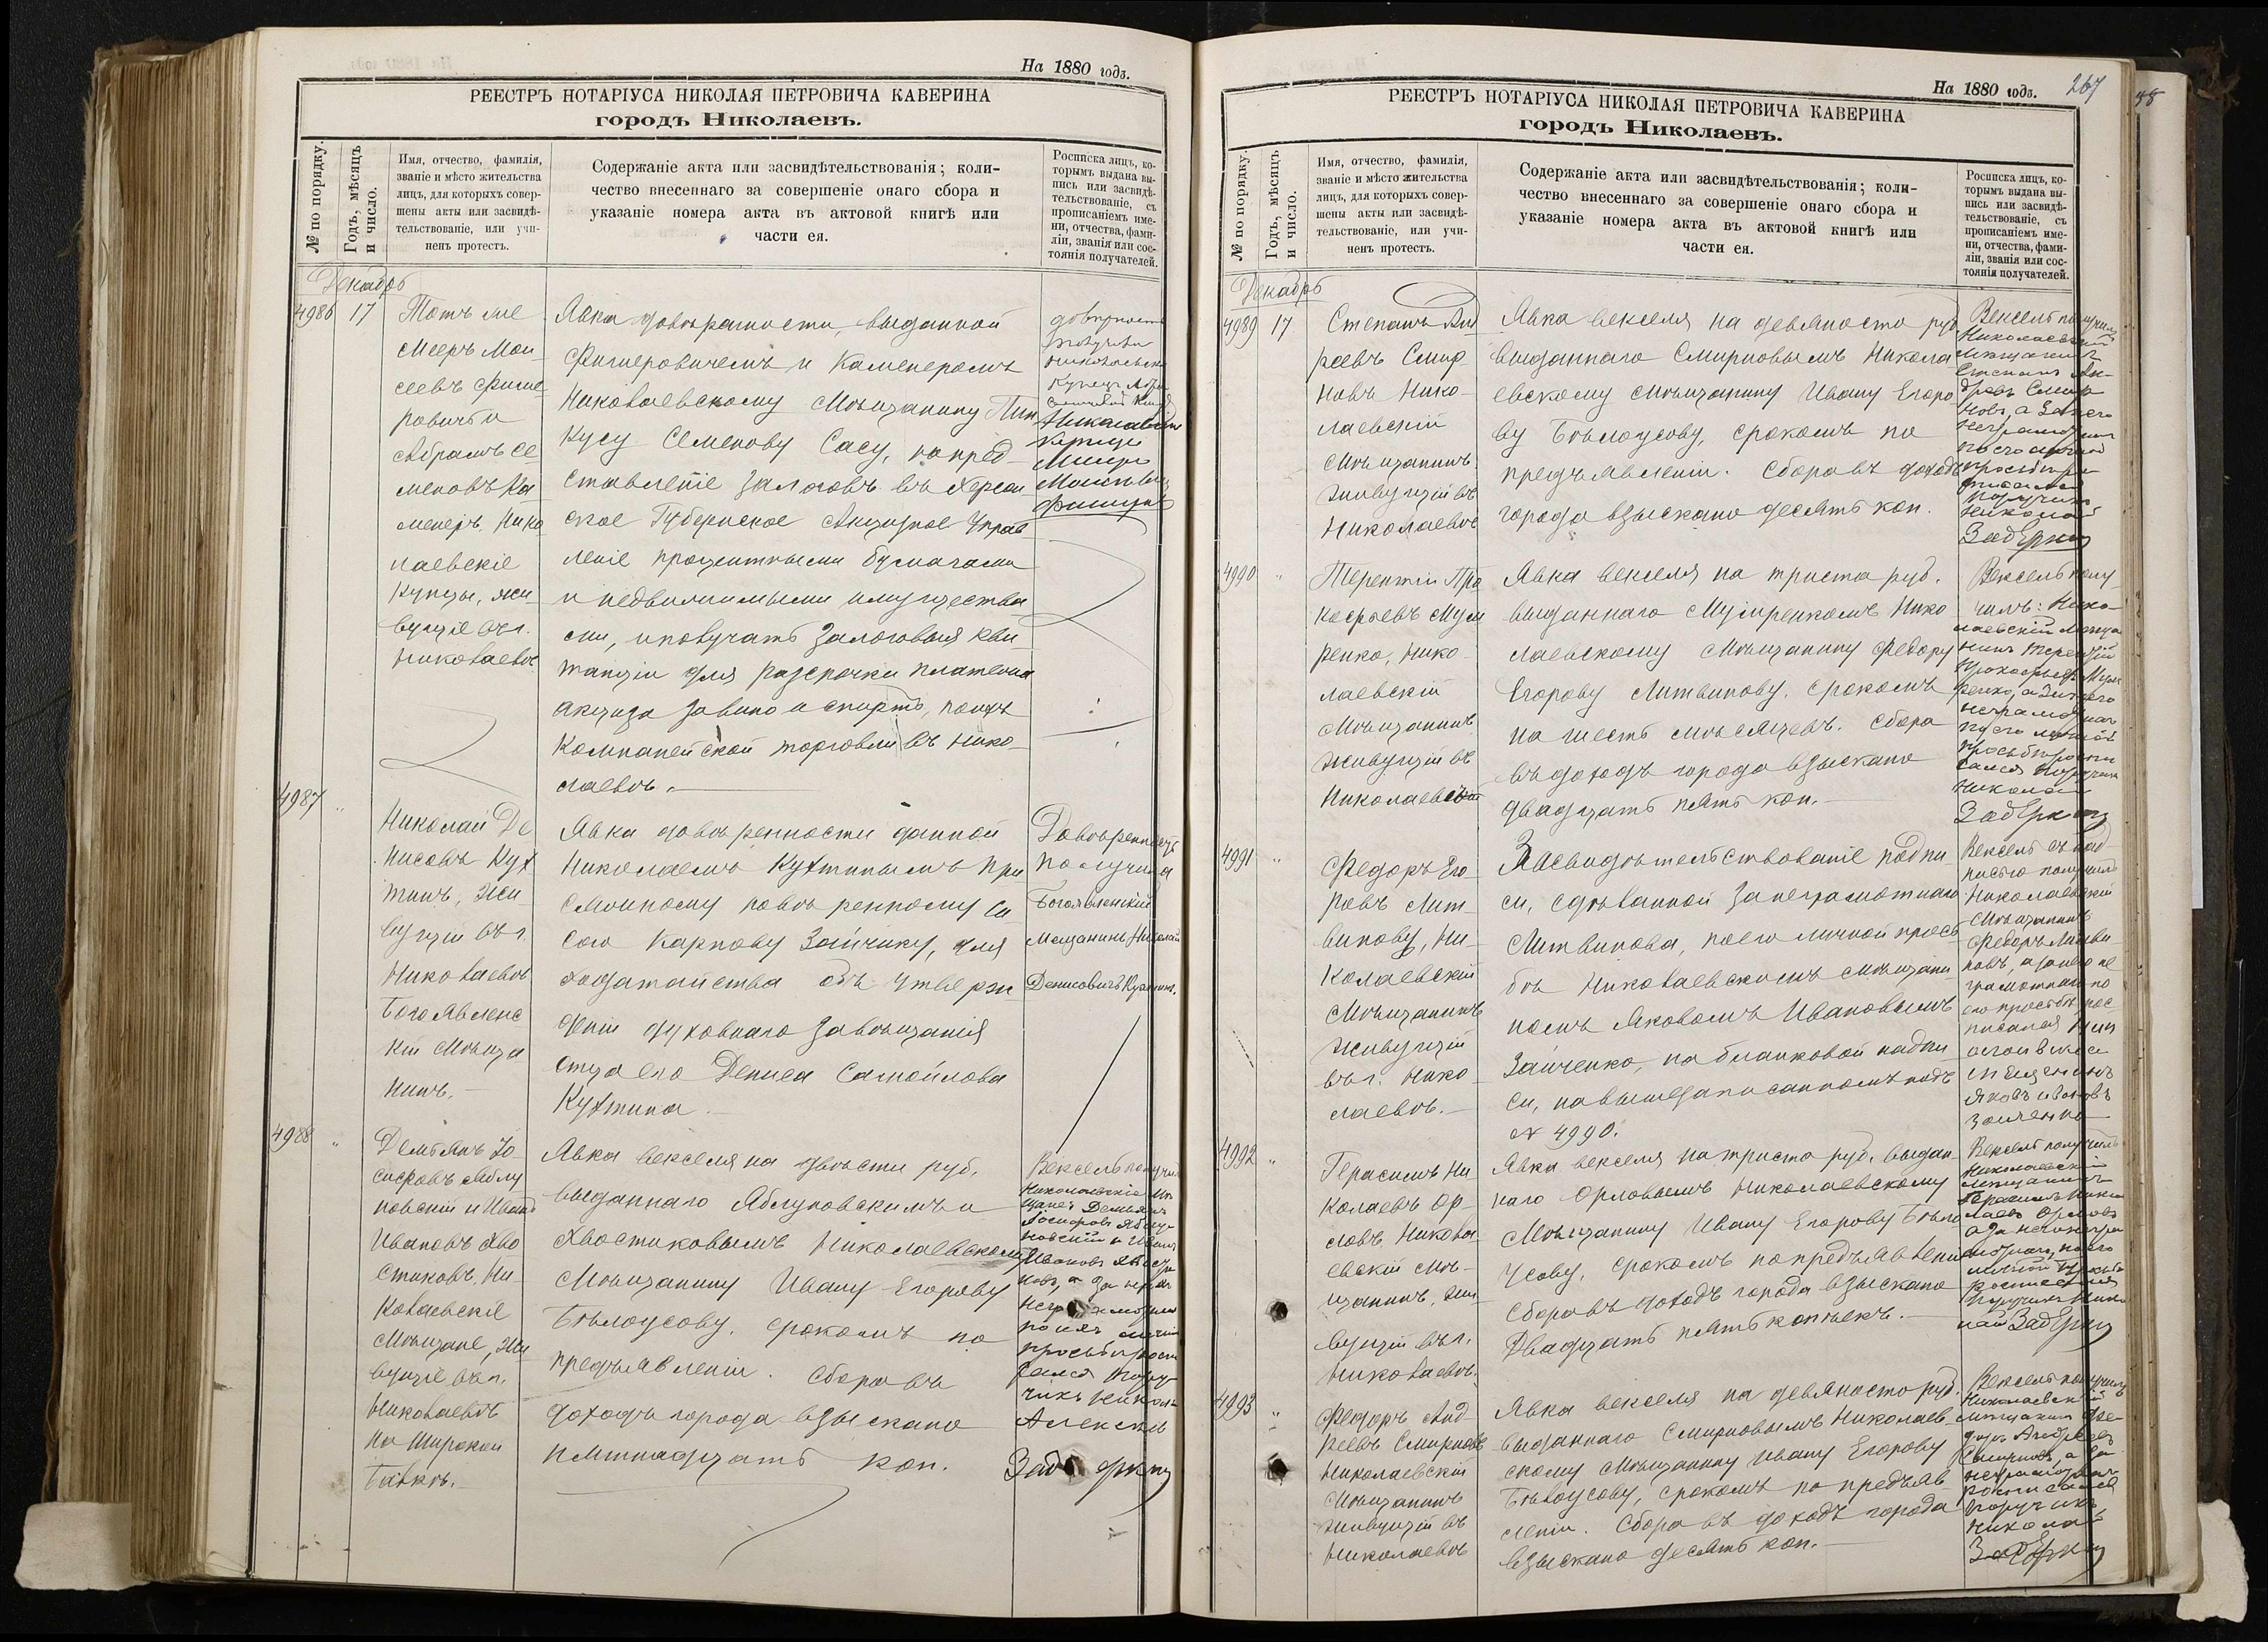 На 1880 годъ.
РЕЕСТРЪ НОТАРІУСА НИКОЛАЯ ПЕТРОВИЧА КАВЕРИНА
городъ Николаевъ.
№ по порядку.
Годъ, мѣсяцъ
и число.
Имя, отчество, фамилія,
званіе и мѣсто жительства
лицъ, для которыхъ совер-
шены акты или засвидѣ-
тельствованіе, или учи-
ненъ протестъ.
Содержаніе акта или засвидѣтельствованія; коли-
чество внесеннаго за совершеніе онаго сбора и
указаніе номера акта въ актовой книгѣ или
части ея.
Росписка лицъ, ко-
торымъ выдана вы-
пись или засвидѣ-
тельствованіе, съ
прописаніемъ име-
ни, отчества, фами-
ліи, званія или сос-
тоянія получателей.
Декабрь
4986 17
Тотъ же
Мееръ Мои
сеевъ Фише
ровичъ и
Абрамъ Се
меновъ Ка
менеръ, Нико
лаевскіе
Купцы, жи-
вущіе въ г.
Николаевѣ
Явка довѣренности, выданной
Фишеровичемъ и Каменеромъ
Николаевскому Мѣщанину Пин
кусу Семенову Сасу, на пред-
ставленіе залоговъ въ Херсон
ское Губернское Акцизное Управ
леніе процентными бумагами
и недвижимыми имущества
ми, и получать залоговыя кви
танціи для разсрочки платежа
акциза за вино и спиртъ, по ихъ
Компанейской торговли въ Нико-
лаевѣ.
Купецъ
Николаевскій
Купецъ
4987 "
Николай Де
нисовъ Кух
тинъ, жи-
вущій въ г.
Николаевѣ
Богоявленс
кій Мѣща
нинъ.
Явка довѣренности данной
Николаемъ Кухтинымъ При
сяжному повѣренному
Карпову Зайчику, для
ходатайства объ утверж
деніи духовнаго завѣщанія
отца его Дениса Самойлова
Кухтина.
Довѣренность
получилъ
Богоявленскій
Мещанинъ Николай
Денисовичъ Кухтинъ.
4988 "
Демьянъ Іо
сифовъ Яблу
новскій и Иванъ
Ивановъ Хво
стиковъ, Ни-
колаевскіе
Мѣщане, жи
вущіе въ г.
Николаевѣ
на Широкой
балкѣ.
Явка векселя на двѣсти руб.
выданнаго Яблуновскимъ и
Хвостиковымъ Николаевскому
Мѣщанину Ивану Егорову
Бѣлоусову, срокомъ по
предъявленіи. Сбора въ
доходъ города взыскано
пятнадцать коп.
Вексель получи
Николаевскіе мѣ
щане Демьянъ
Іосифовъ Яблу-
новскій и Иванъ
Ивановъ Хвости
ковъ, а за
по ихъ личной
просьбѣ роспи
сался Пору-
чикъ Николай
На 1880 годъ.
267
РЕЕСТРЪ НОТАРІУСА НИКОЛАЯ ПЕТРОВИЧА КАВЕРИНА
городъ Николаевъ.
№ по порядку.
Годъ, мѣсяцъ
и число.
Имя, отчество, фамилія,
званіе и мѣсто жительства
лицъ, для которыхъ совер-
шены акты или засвидѣ-
тельствованіе, или учи-
ненъ протестъ.
Содержаніе акта или засвидѣтельствованія; коли-
чество внесеннаго за совершеніе онаго сбора и
указаніе номера акта въ актовой книгѣ или
части ея.
Росписка лицъ, ко-
торымъ выдана вы-
пись или засвидѣ-
тельствованіе, съ
прописаніемъ име-
ни, отчества, фами-
ліи, званія или сос-
тоянія получателей.
Декабрь
4989 17
Степанъ Анд
реевъ Смир
новъ Нико-
лаевскій
Мѣщанинъ
живущій въ
Николаевѣ
Явка векселя на девяносто руб
выданнаго Смирновымъ Никола
евскому Мѣщанину Ивану Егоро
ву Бѣлоусову, срокомъ по
предъявленіи. Сбора въ доходъ
города взыскано десять коп.
Вексель получилъ
Николаевскій
мѣщанинъ
Степанъ Ан-
дреевъ Смир
новъ, а за него
неграмотнаго
по его личной
просьбѣ рос
писался
Поручикъ
Николай
4990 "
Терентій Про
кофьевъ Муш
ренко, Нико-
лаевскій
Мѣщанинъ
живущій въ
Николаевѣ
Явка векселя на триста руб.
выданнаго Мушренкомъ Нико
лаевскому Мѣщанину Федору
Егорову Литвинову, срокомъ
на шесть мѣсяцевъ. Сбора
въ доходъ города взыскано
двадцать пять коп.
Вексель полу
чилъ: Нико-
лаевскій Мѣща
нинъ Терентій
Прокофьевъ Муш
ренко, а за него
неграмотнаго
по его личной
просьбѣ роспи
сался Поручикъ
Николай
4991 "
Федоръ Его-
ровъ Лит-
винову, Ни-
колаевскій
Мѣщанинъ
живущій
въ г. Нико-
лаевѣ.
Засвидѣтельствованіе подпи
си, сдѣланной за неграмотнаго
Литвинова, по его личной прось
бѣ Николаевскимъ Мѣщани
номъ Яковомъ Ивановымъ
Зайченко, на бланковой надпи
си, на вышезаписанномъ подъ
№ 4990.
Вексель съ над-
писью получилъ
Николаевскій
Мѣщанинъ
Федоръ Литви-
новъ, а за него не
грамотнаго по
его просьбѣ рос-
писался Ник
олаевский
мещенинъ
Яковъ ивановъ
Зайченко
4992 "
Герасимъ Ни
колаевъ Ор-
ловъ, Никола-
евскій Мѣ-
щанинъ, жи-
вущій въ г.
Николаевѣ.
Явка векселя на триста руб. выдан
наго Орловымъ Николаевскому
Мѣщанину Ивану Егорову Бѣло
усову, срокомъ по предъявленіи
Сбора въ доходъ города взыскано
Двадцать пять копѣекъ.
Вексель получилъ
Николаевскій
мѣщанинъ
Герасимъ Нико
лаевъ Орловъ
а за него негра
мотнаго, по его
личной просьбѣ
росписался
Поручикъ Нико
лай
4993 "
Федоръ Анд-
реевъ Смирновъ
Николаевскій
Мѣщанинъ
живущій въ
Николаевѣ
Явка векселя на девяносто руб.
выданнаго Смирновымъ Николаев-
скому Мѣщанину Ивану Егорову
Бѣлоусову, срокомъ по предъяв
леніи. Сбора въ доходъ города
взыскано десять коп.
Вексель получилъ
Николаевскій
мѣщанинъ Фе-
доръ Андреевъ
Смирновъ, а за
неграмотнаго
росписался
Поручикъ
Николай